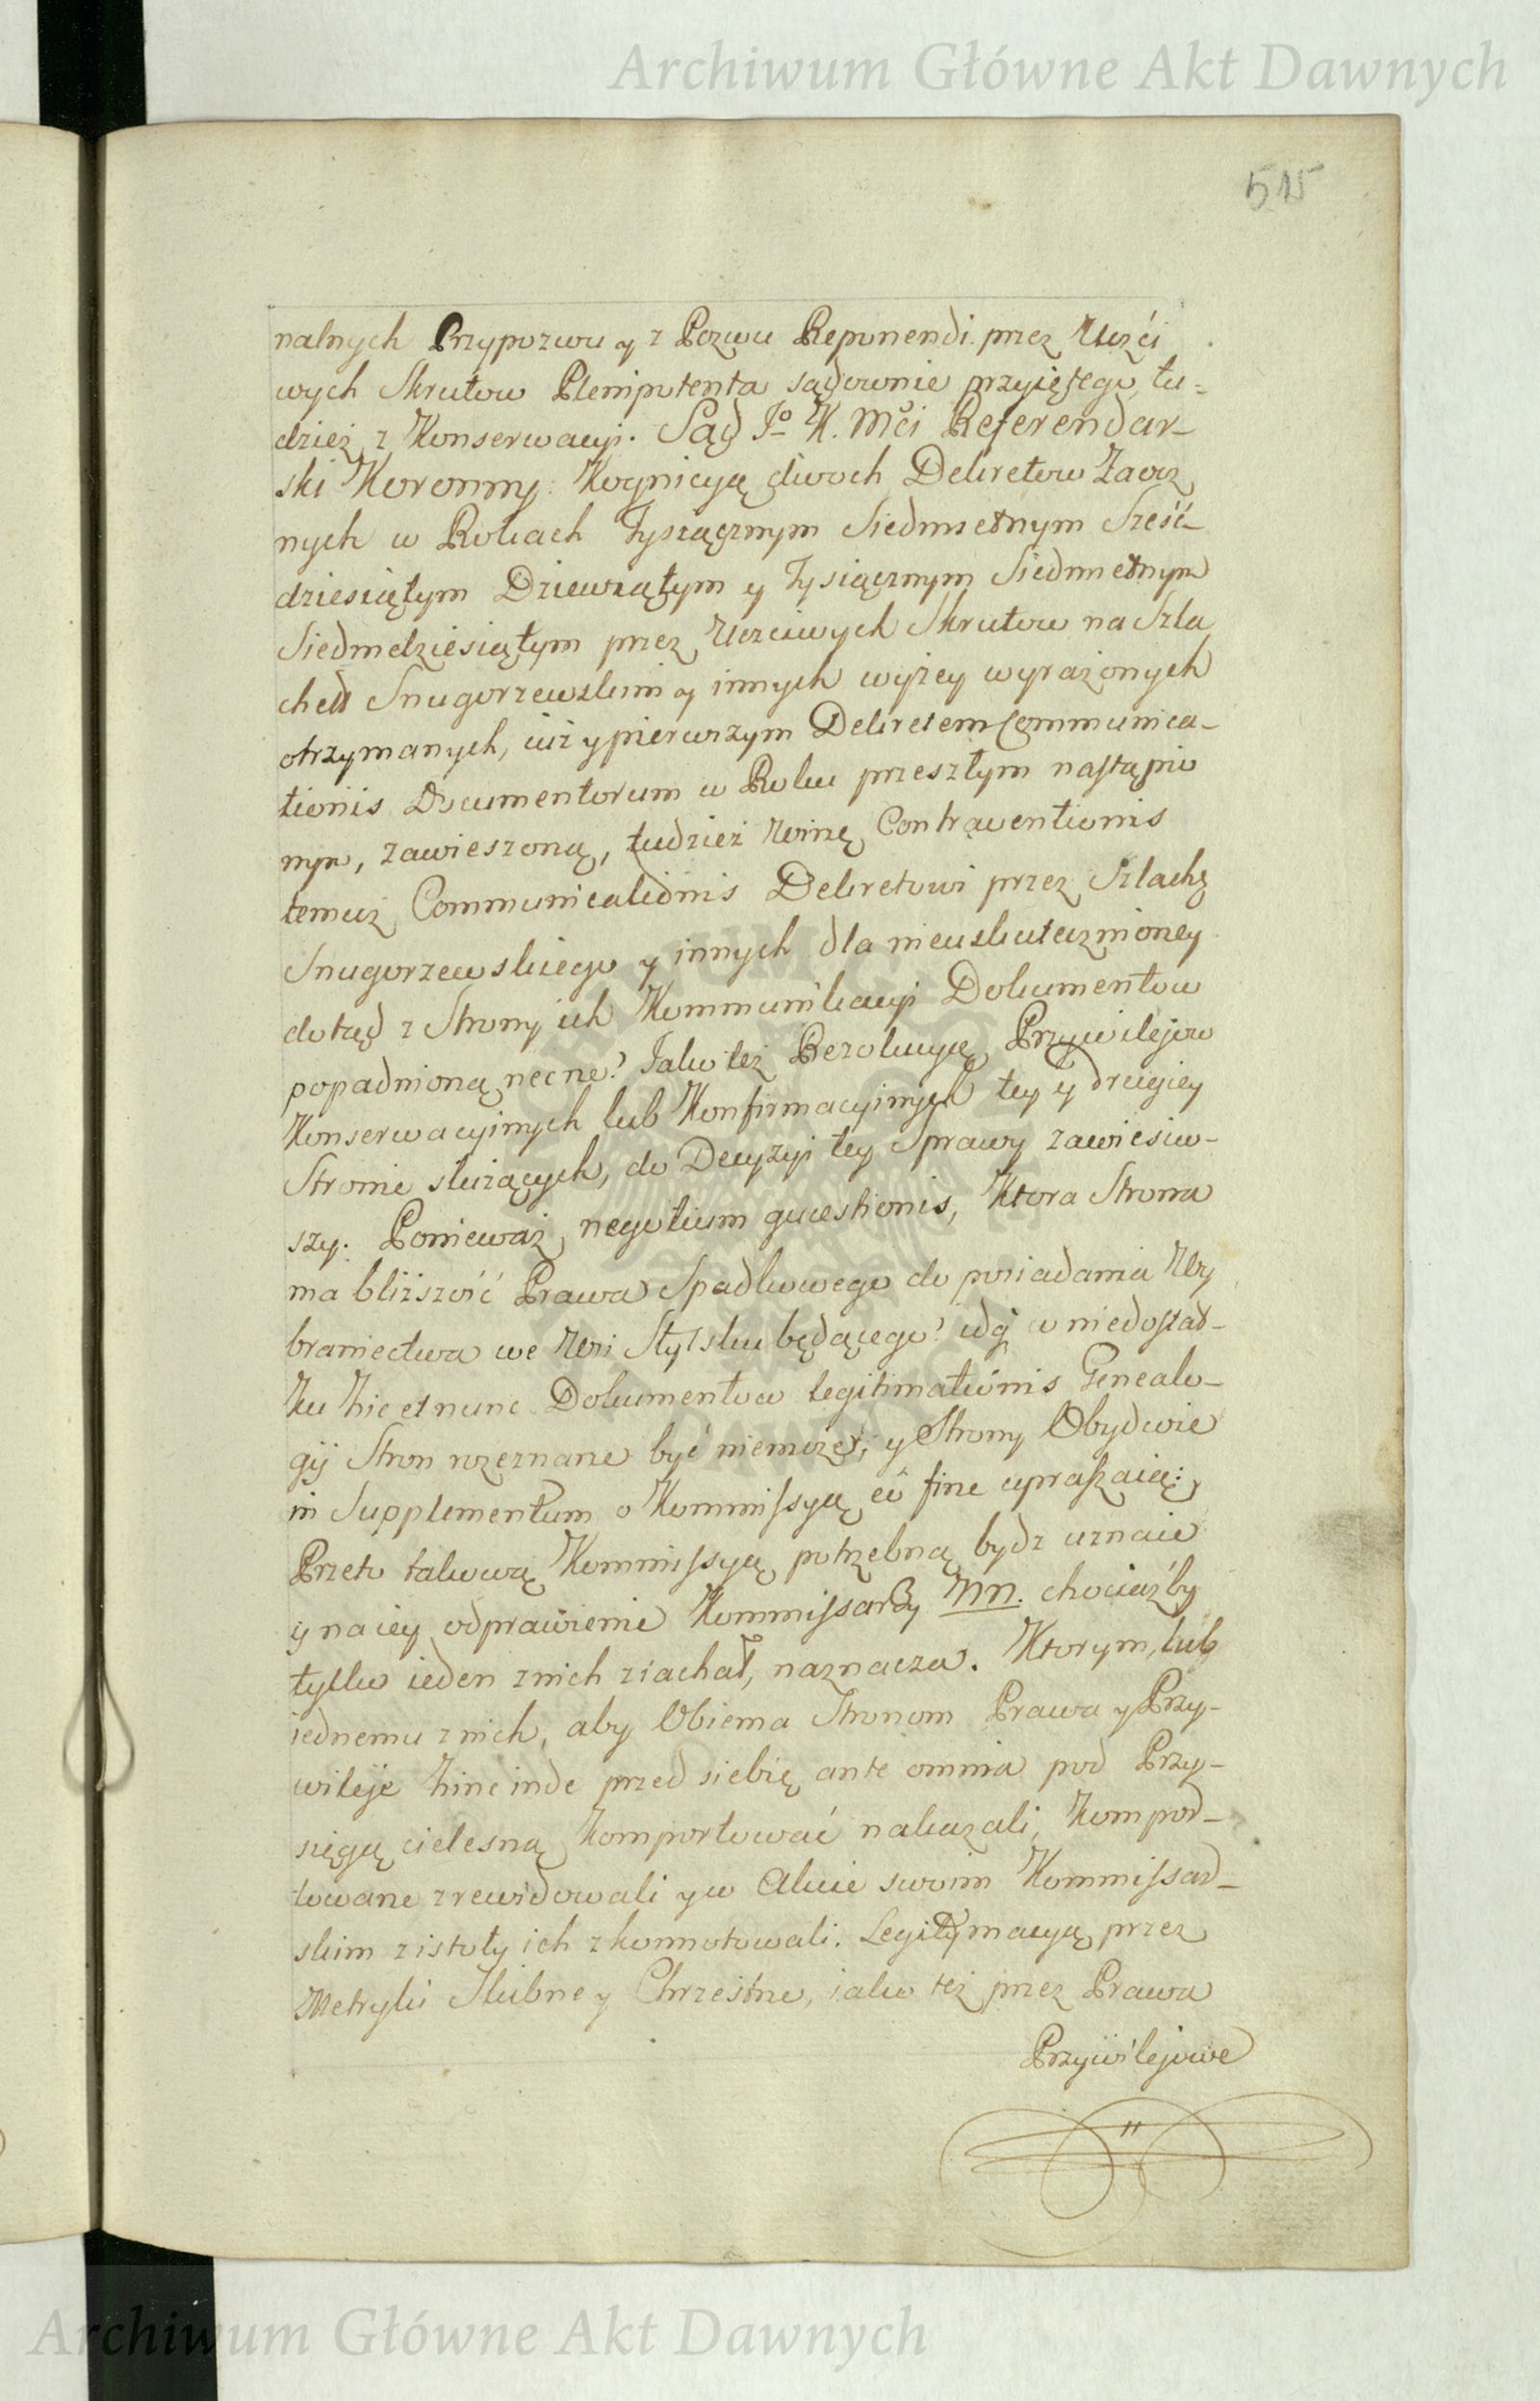 Archiwum Główne Akt Dawnych
515
nalnych Przypozwu y z Pozwu Reponendi przez Uczci
wych Skrutow Plenipotenta sądownie przyiętego, tu=
dzież z Konserwacyi. Sąd Jo K. Mci Referendar-
ski Koronny. Kognicyą dwoch Dekretow Zaocz
nych w Rokach Tysiącznym Siedmsetnym Sześć-
dziesiątym Dziewiątym y Tysiącznym Siedmsetnym
Siedmdziesiątym przez Uczciwych Skrutow na Szla
chett Snugorzewskim y innych wyżey wyrażonych
otrzymanych, iuż y pierwszym Dekretem Communica-
tionis Documentorum w Roku przeszłym nastąpio
nym, zawieszoną, tudzież Winę Contraventionis
temuż Communicationis Dekretowi przez Szlachę
Snugorzewskiego y innych dla nieuskutecznioney
dotąd z Strony ich Kommunikacyi Dokumentow
popadnioną necne? Jako też Rezolucyą Przywilejow
Konserwacyinych lub Konfirmacyinych tey y drugiey
Stronie służących, do Decyzyi tey Sprawy zawiesiw-
szy. Ponieważ negotium quaestionis, Ktora Strona
ma bliższość Prawa Spadkowego do posiadania Wy
braniectwa we Wsi Stylsku będącego? idq w niedostat-
ku hic et nunc Dokumentow legitimationis Genealo-
gij Stron rozeznane być niemoże, y Strony Obydwie
in Supplementum o Kommissyą eo fine upraszaią;
Przeto takową Kommissyą potrzebną bydz uznaie
y na iey odprawienie Kommissarzy NN. chociażby
tylko ieden z nich ziachał, naznacza. Ktorym, lub
iednemu z nich, aby Obiema Stronom Prawa y Przy-
wileje hinc inde przed siebię ante omnia pod Przy-
sięgą cielesną komportować nakazali, kompor-
towane zrewidowali y w Akcie swoim Kommissar-
skim z istoty ich zkonnotowali. Legitymacyą przez
Metryki Slubne y Chrzestne, iako też przez Prawa
Przywilejowe
Archiwum Główne Akt Dawnych